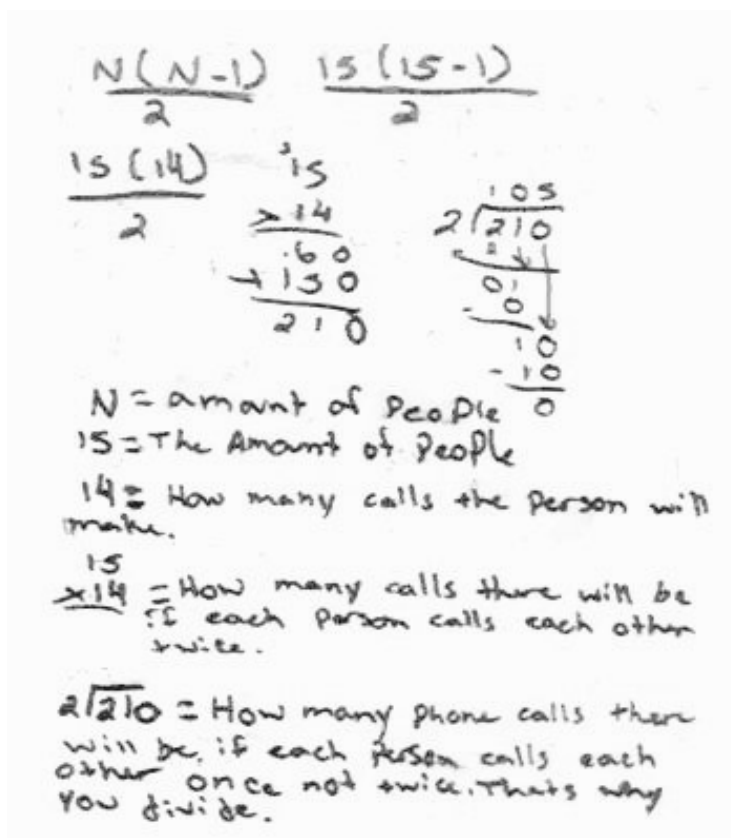 N(N-1) 15(15-1)
2 2
15(14)
2
³15
×14
60
+150
210
105
2√210
2
01
-0
10
-10
0
N = amount of People
15 = The Amount of People
14 = How many calls the Person will
make.
15
×14 = How many calls there will be
if each Person calls each other
twice.
2√210 = How many phone calls there
will be, if each Person calls each
other once not twice. Thats why
You divide.